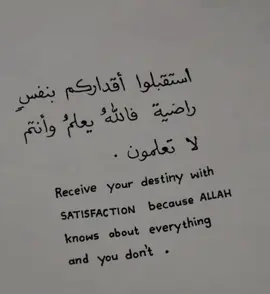 استقبلوا أقداركم بنفسٍ
راضية فاللهُ يعلمُ وأنتم
لا تعلمون .
Receive your destiny with
SATISFACTION because ALLAH
knows about everything
and you don't .